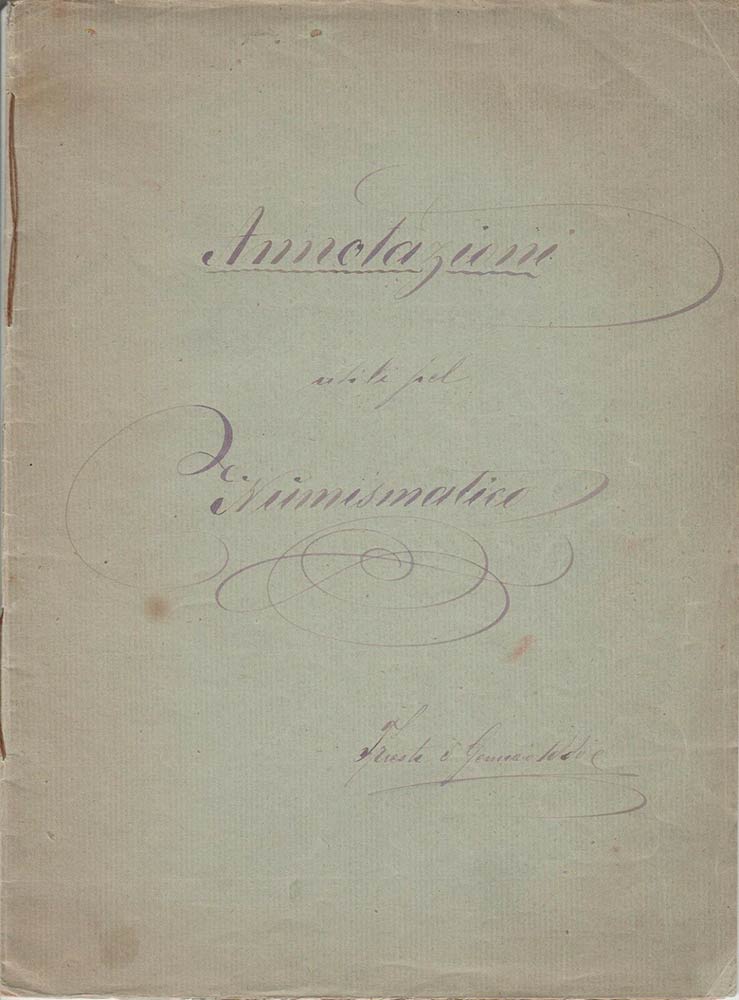 Annotazioni
utili pel
Numismatico
Trieste Gennaio